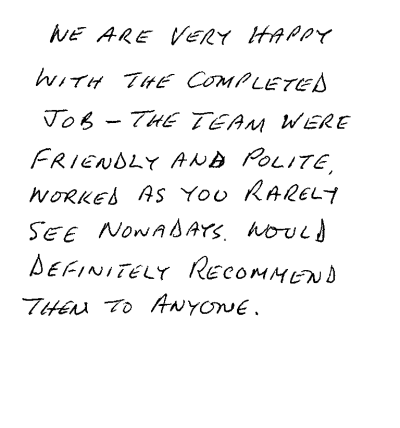 WE ARE VERY HAPPY
WITH THE COMPLETED
JOB - THE TEAM WERE
FRIENDLY AND POLITE,
WORKED AS YOU RARELY
SEE NOWADAYS. WOULD
DEFINITELY RECOMMEND
THEM TO ANYONE.